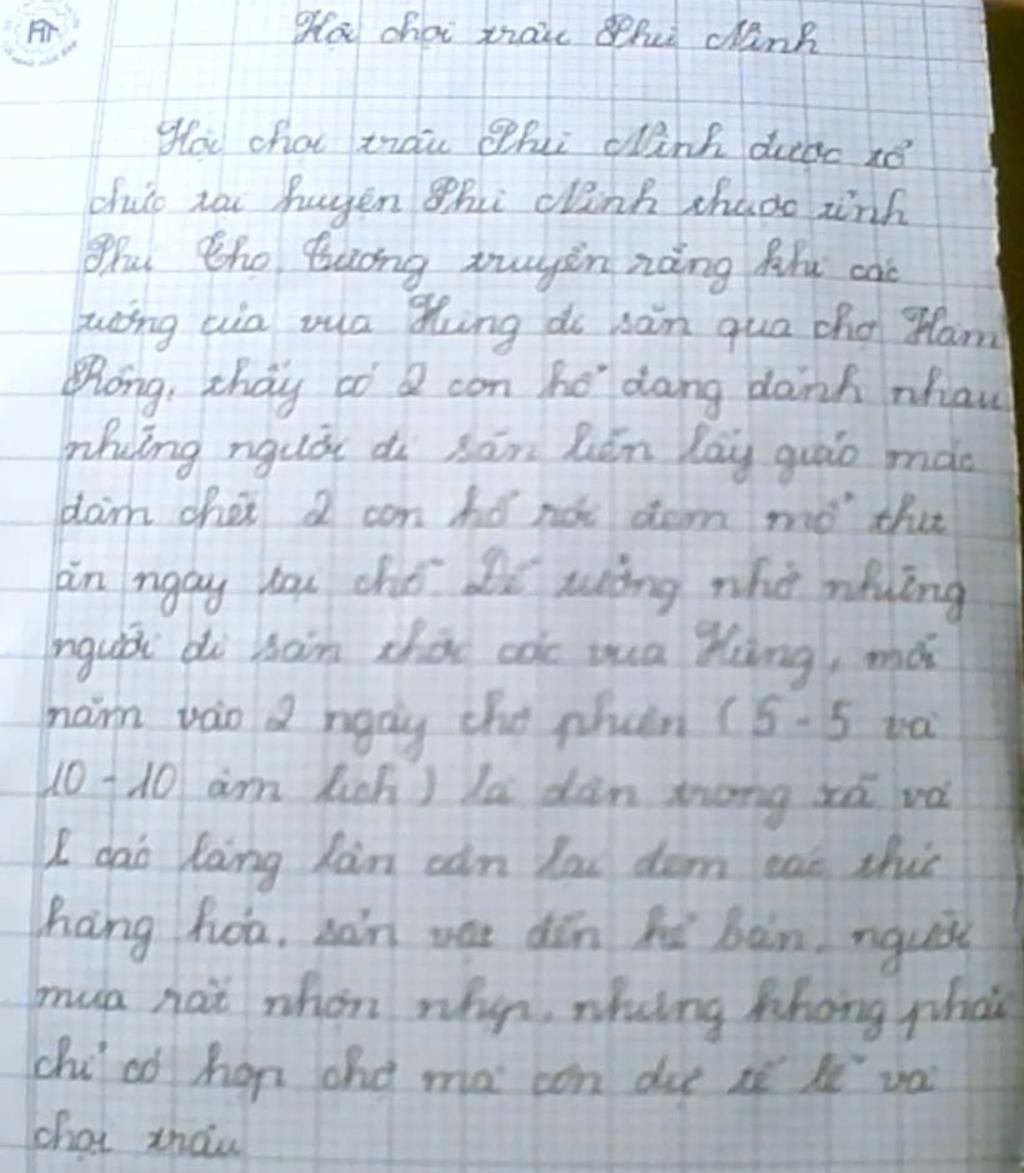 Hội chọi trâu Phù Ninh
Hội chọi trâu Phù Ninh được tổ
chức tại huyện Phù Ninh thuộc tỉnh
Phú Thọ. Tương truyền rằng khi các
tướng của vua Hùng đi săn qua chợ Hàm
Rồng, thấy có 2 con hổ đang đánh nhau
những người đi săn liền lấy giáo mác
đâm chết 2 con hổ rồi đem mổ thịt
ăn ngay tại chỗ. Để tưởng nhớ những
người đi săn thời các vua Hùng, mỗi
năm vào 2 ngày chợ phiên (5-5 và
10-10 âm lịch) là dân trong xã và
các làng lân cận lại đem các thức
hàng hóa, sản vật đến kẻ bán, người
mua rất nhộn nhịp, nhưng không phải
chỉ có họp chợ mà còn dự tế lễ và
chọi trâu